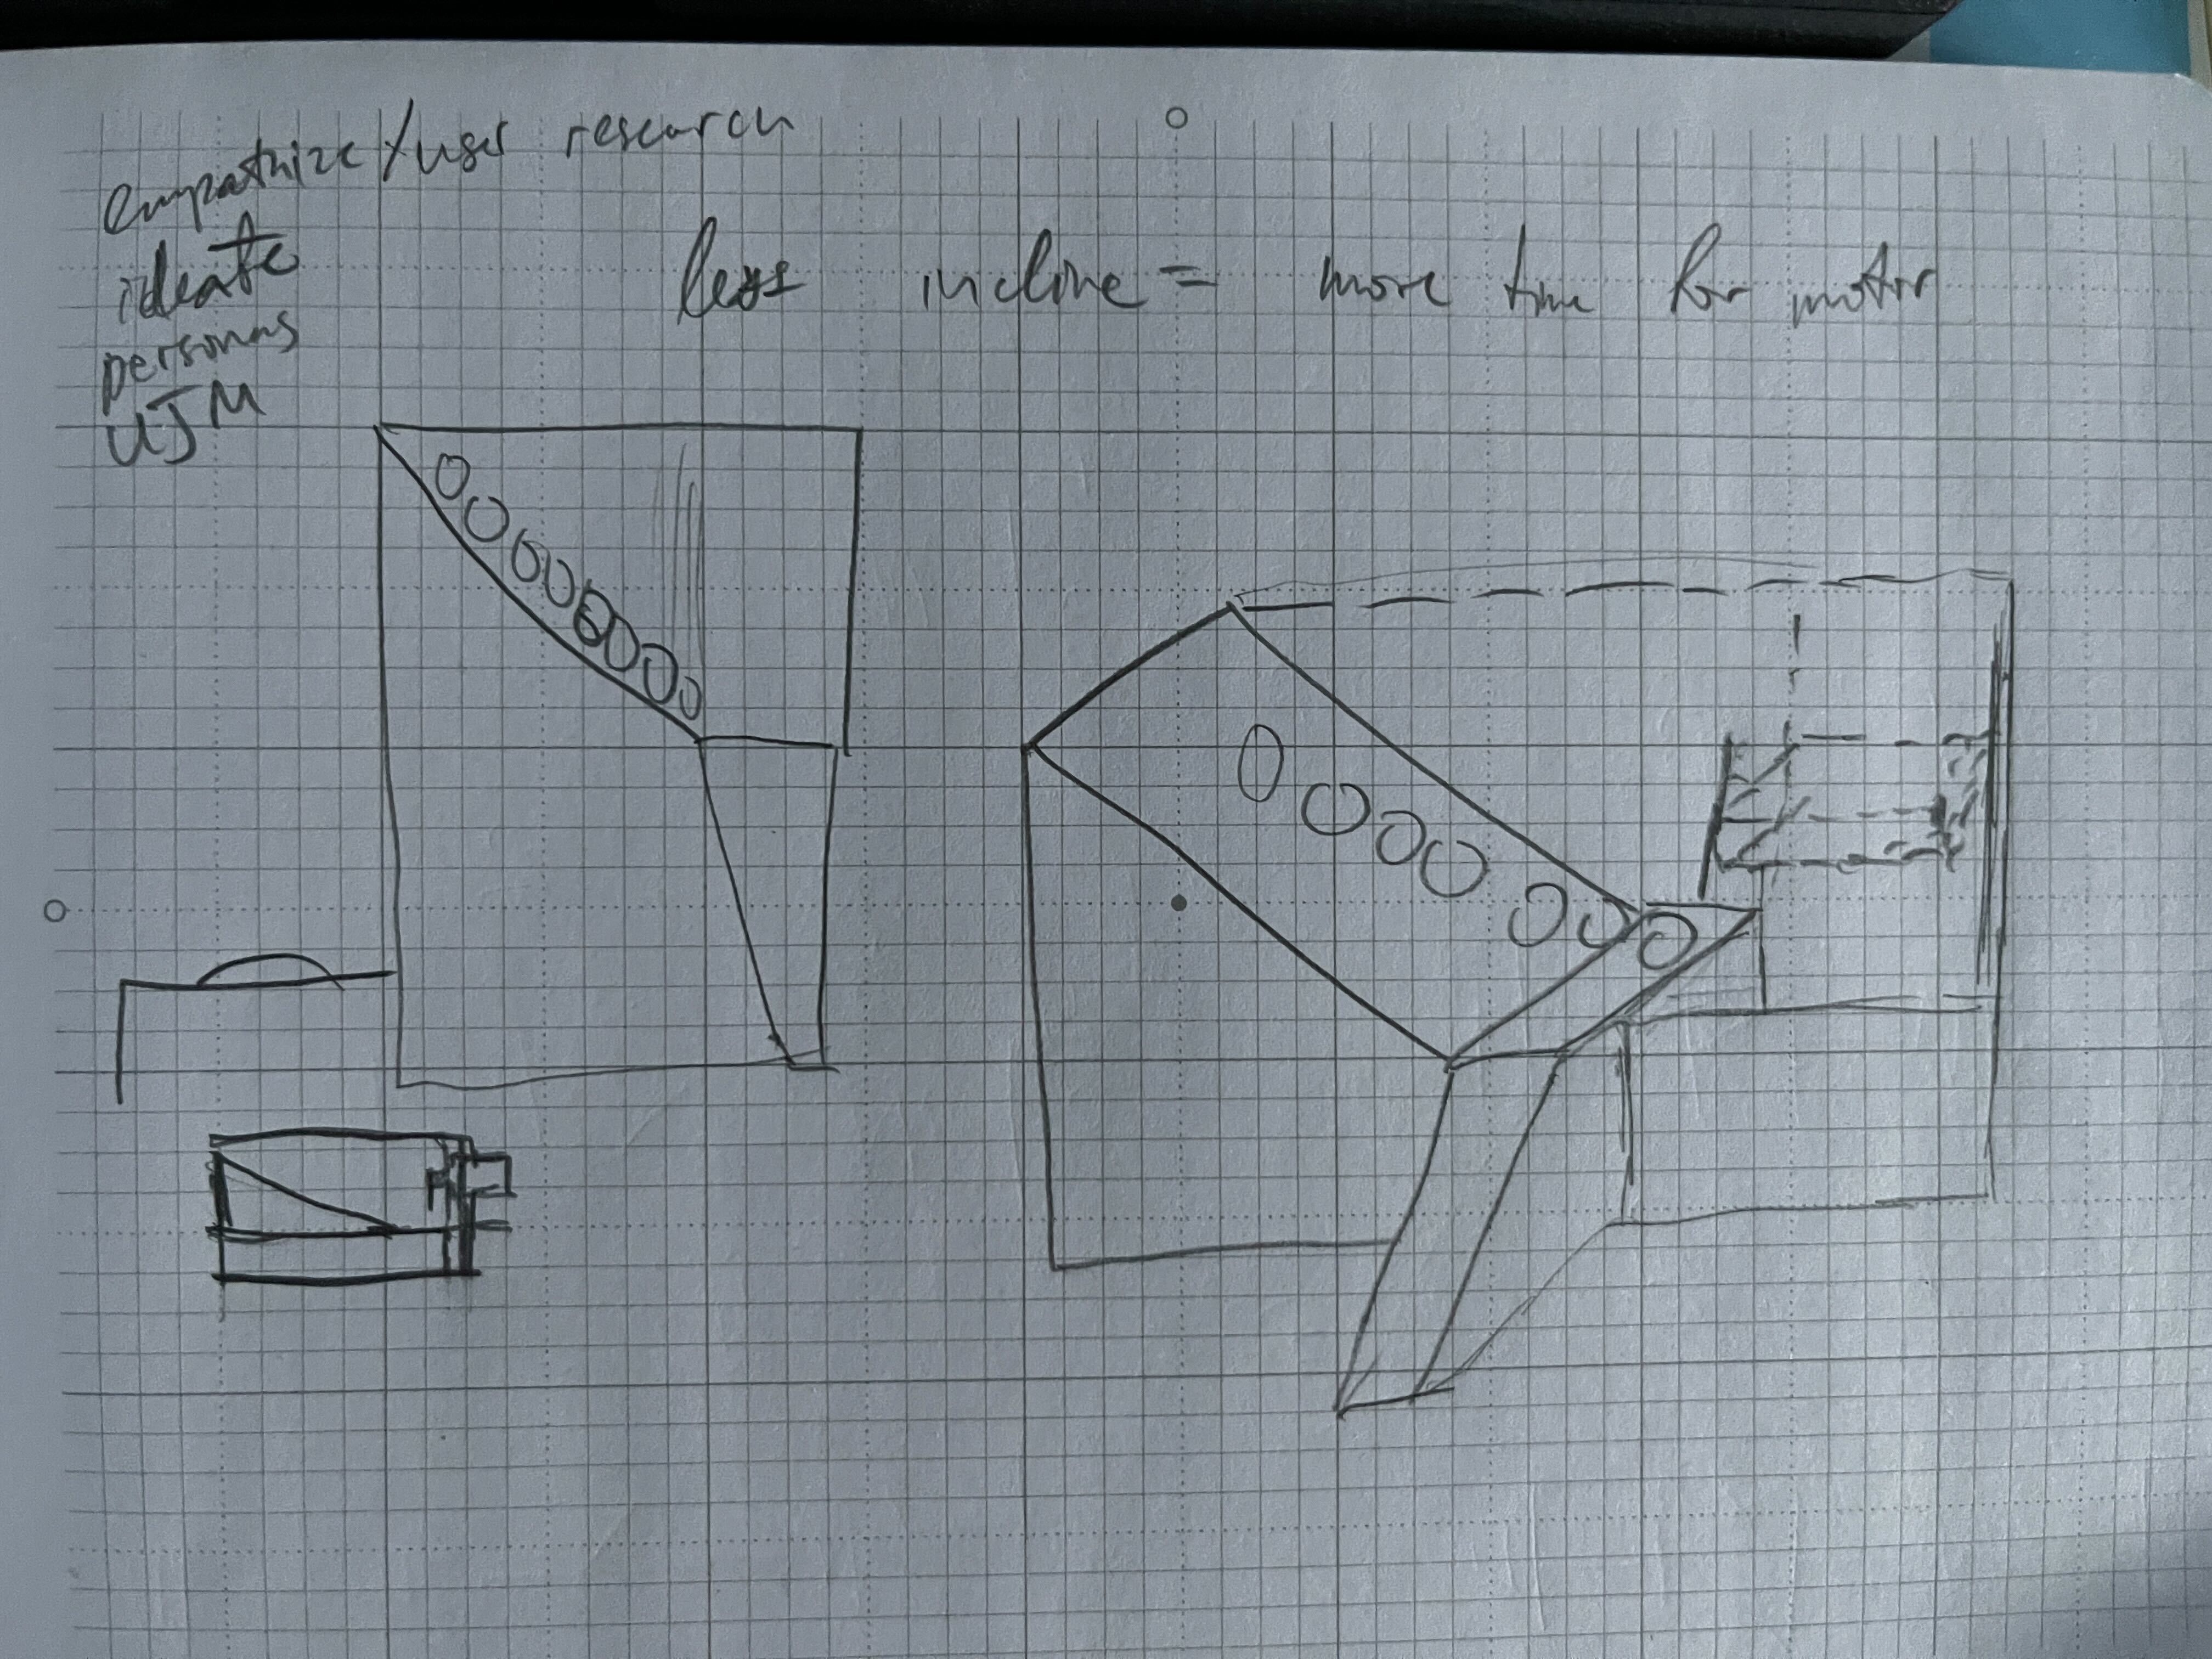 empathize/user research
ideate
personas
UJM
less incline = more time for motor